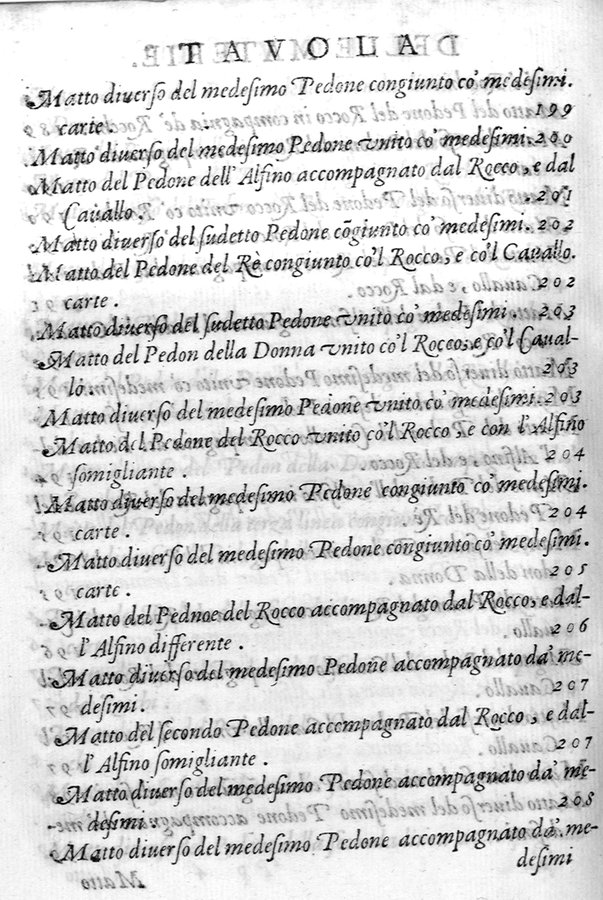 TAVOLA
Matto diuerſo del medeſimo Pedone congiunto co' medeſimi.
carte. 199
Matto diuerſo del medeſimo Pedone vnito co' medeſimi. 200
Matto del Pedone dell'Alfino accompagnato dal Rocco, e dal
Cauallo. 201
Matto diuerſo del ſudetto Pedone cõgiunto co' medeſimi. 202
Matto del Pedone del Rè congiunto co'l Rocco, e co'l Cauallo.
carte. 202
Matto diuerſo del ſudetto Pedone vnito co' medeſimi. 203
Matto del Pedon della Donna vnito co'l Rocco, e co'l Caual-
lo. 203
Matto diuerſo del medeſimo Pedone vnito co' medeſimi. 203
Matto del Pedone del Rocco vnito co'l Rocco, e con l'Alfino
ſomigliante. 204
Matto diuerſo del medeſimo Pedone congiunto co' medeſimi.
carte. 204
Matto diuerſo del medeſimo Pedone congiunto co' medeſimi.
carte. 205
Matto del Pednoe del Rocco accompagnato dal Rocco, e dal-
l'Alfino differente. 206
Matto diuerſo del medeſimo Pedone accompagnato da' me-
deſimi. 207
Matto del ſecondo Pedone accompagnato dal Rocco, e dal-
l'Alfino ſomigliante. 207
Matto diuerſo del medeſimo Pedone accompagnato da' me-
deſimi. 208
Matto diuerſo del medeſimo Pedone accompagnato da' me-
deſimi